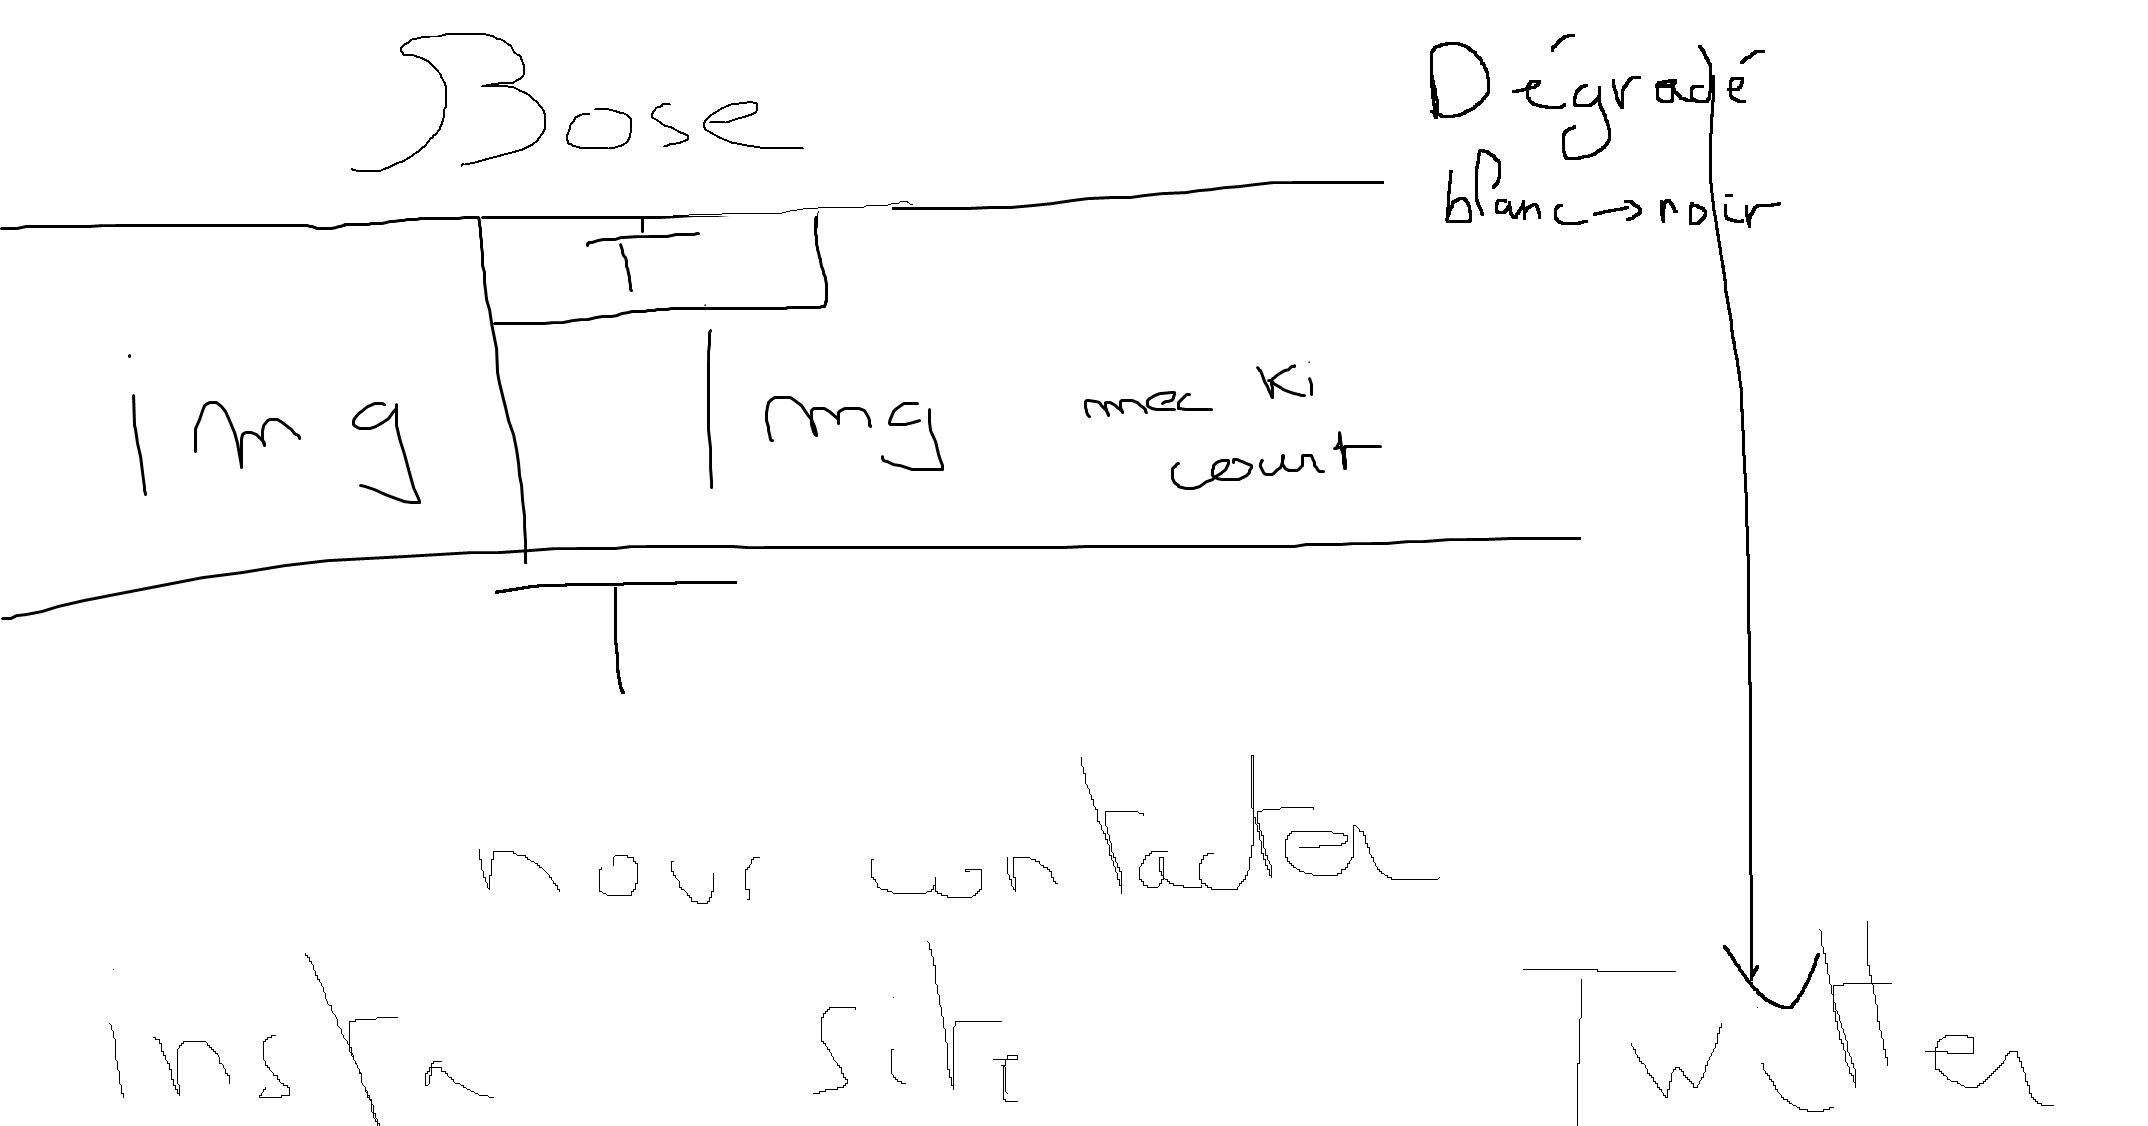 Bose
Dégradé
blanc → noir
T
img
Img
mec ki
court
T
nous contacter
insta
site
Twitter